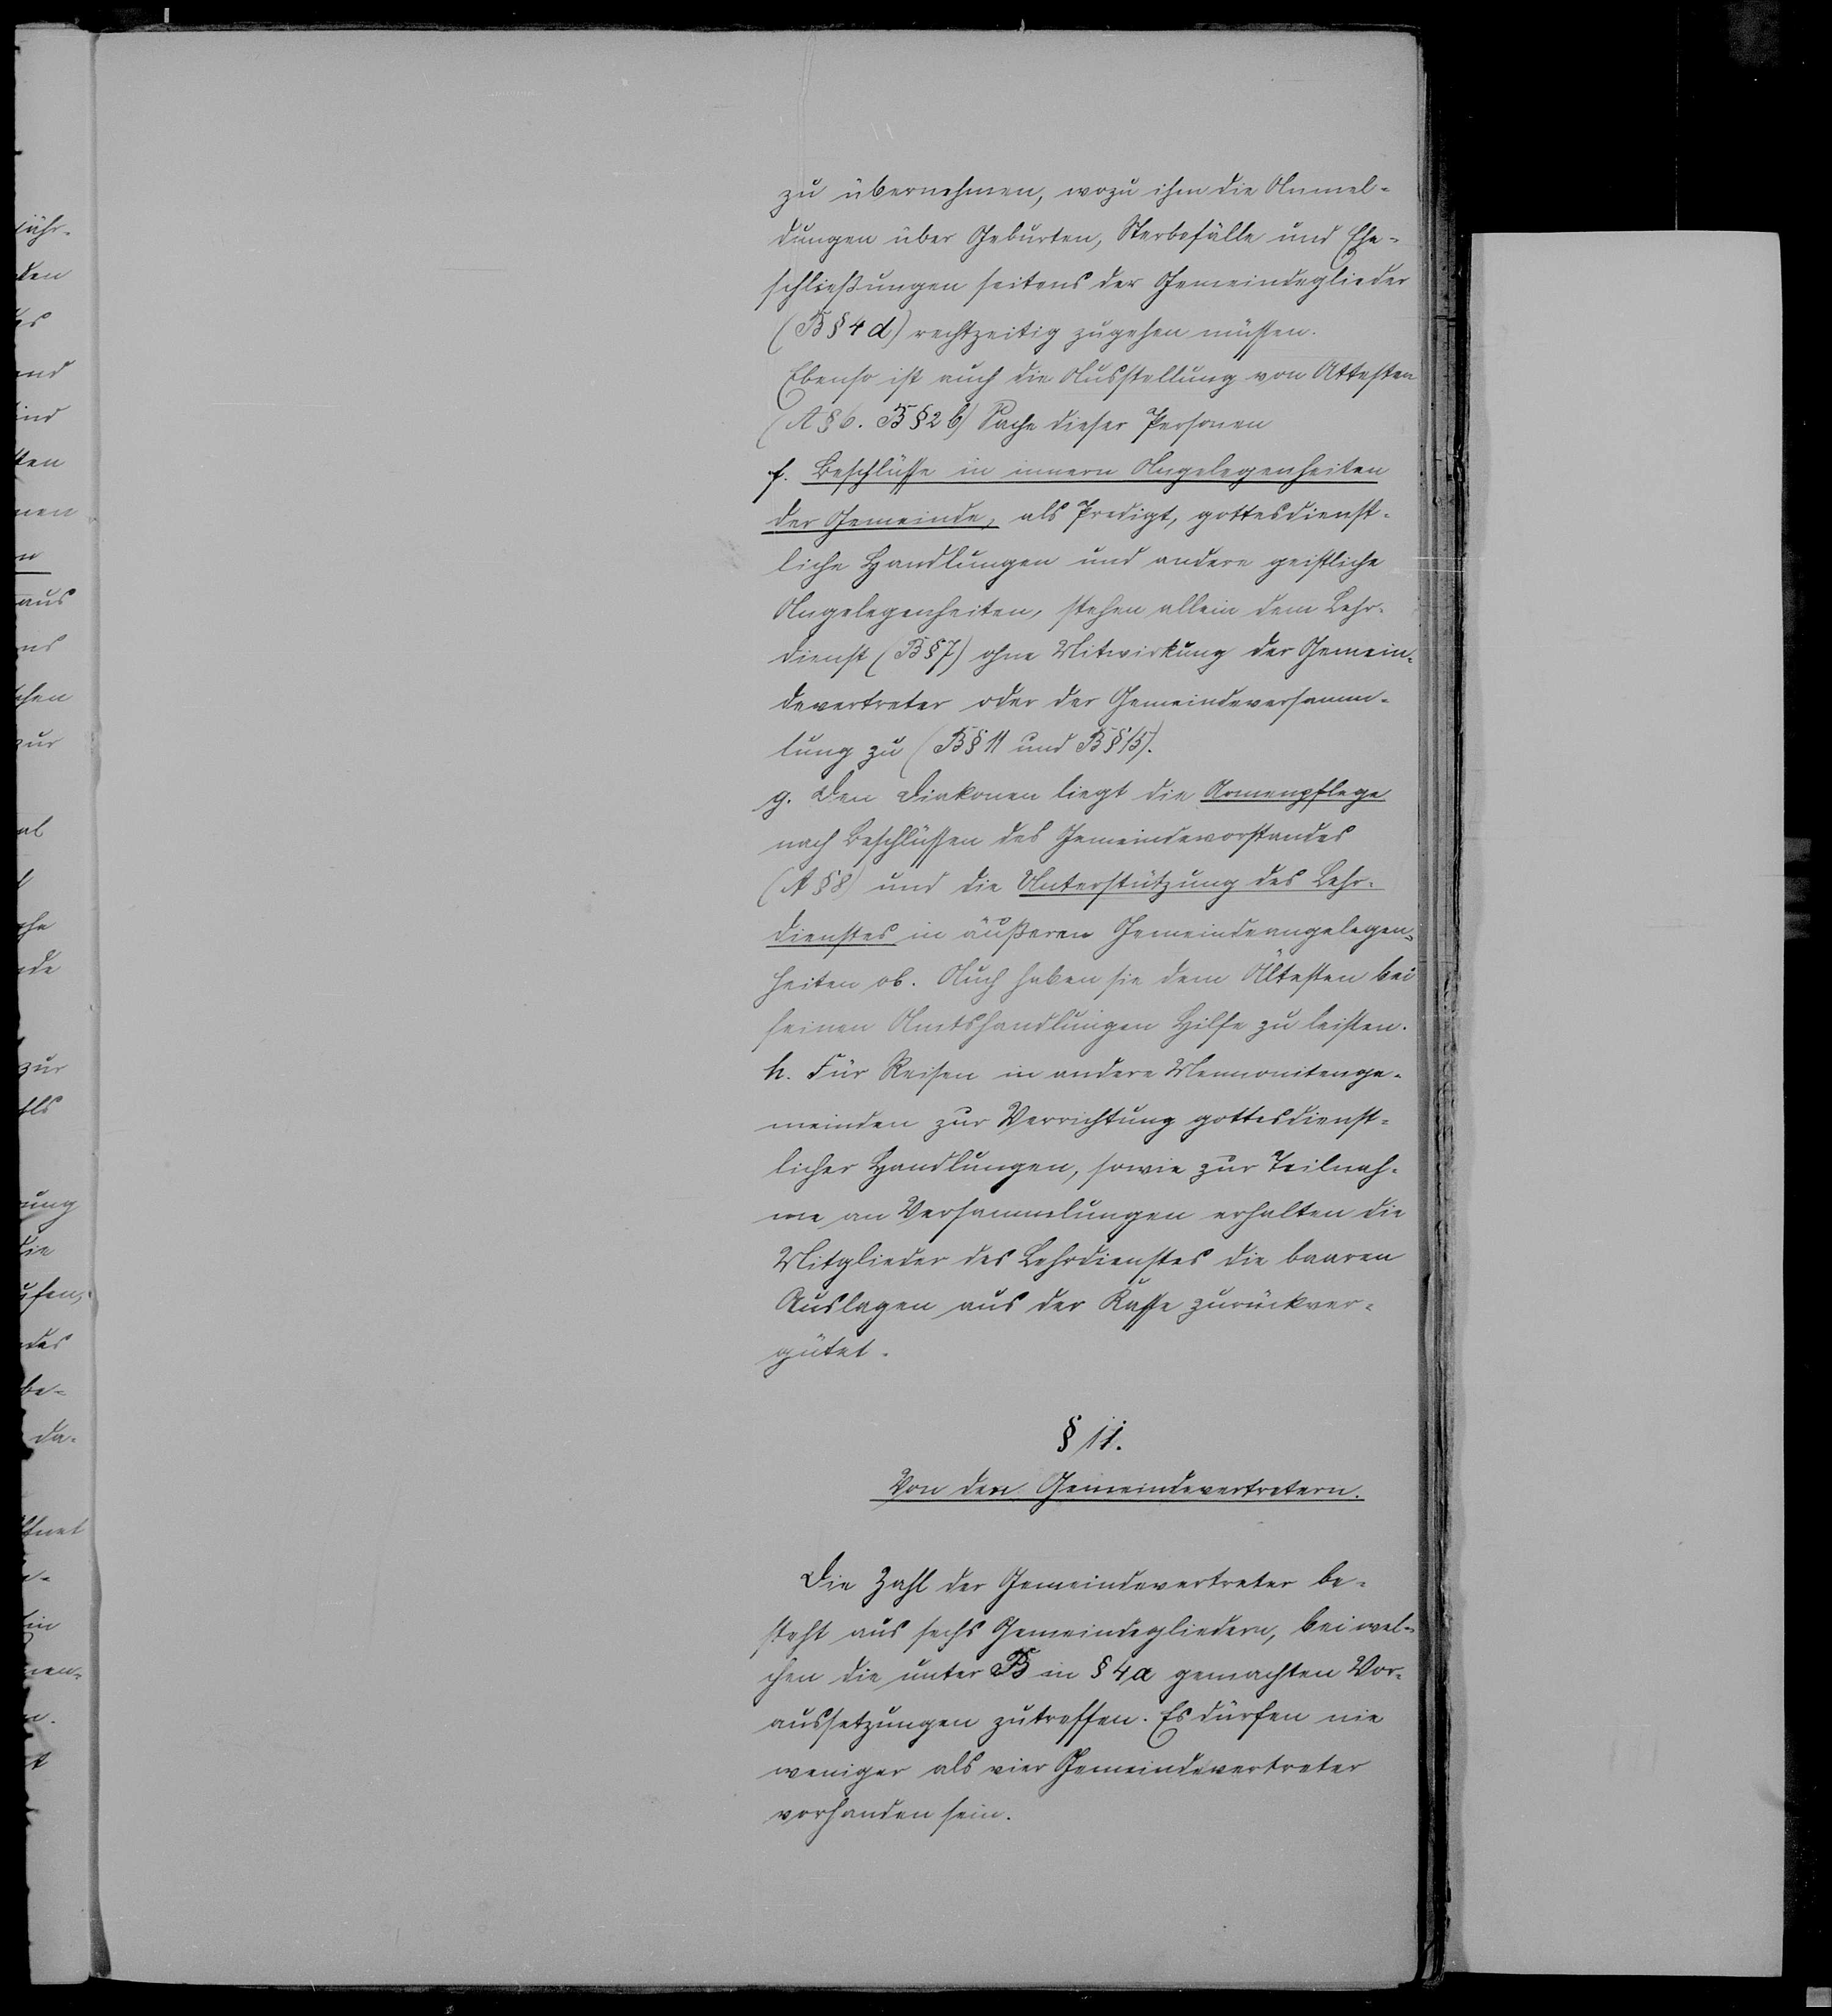 zu übernehmen, wozu ihm die Anmel-
dungen über Geburten, Sterbefälle und Ehe-
schließungen seitens der Gemeindeglieder
(B § 4 d) rechtzeitig zugehen müssen.
Ebenso ist auch die Ausstellung von Attesten
(A § 6. B § 2 b) Sache dieser Personen
f. Beschlüsse in innern Angelegenheiten
der Gemeinde, als Predigt, gottesdienst-
liche Handlungen und andere geistliche
Angelegenheiten, stehen allein dem Lehr-
dienst (B § 7) ohne Mitwirkung der Gemein-
devertreter oder der Gemeindeversamm-
lung zu (B § 11 und B § 15).
g. Den Diakonen liegt die Armenpflege
nach Beschlüssen des Gemeindevorstandes
(A § 8) und die Unterstützung des Lehr-
dienstes in äußeren Gemeindeangelegen-
heiten ob. Auch haben sie dem Ältesten bei
seinen Amtshandlungen Hilfe zu leisten.
h. Für Reisen in andere Mennonitenge-
meinden zur Verrichtung gottesdienst-
licher Handlungen, sowie zur Teilnah-
me an Versammlungen erhalten die
Mitglieder des Lehrdienstes die baaren
Auslagen aus der Kasse zurückver-
gütet.
§ 11.
Von den Gemeindevertretern.
Die Zahl der Gemeindevertreter be-
steht aus sechs Gemeindegliedern, bei wel-
chen die unter B in § 4 a gemachten Vor-
aussetzungen zutreffen. Es dürfen nie
weniger als vier Gemeindevertreter
vorhanden sein.